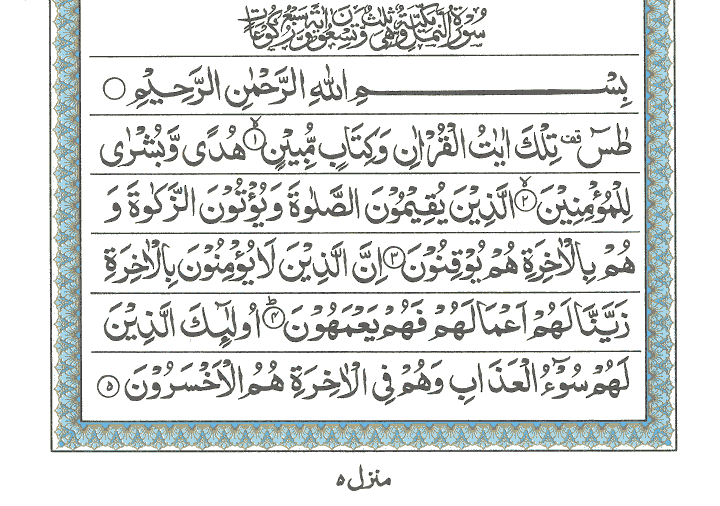 سُوْرَةُ النَّمْلِ مَكِّيَّةٌ وَّهِيَ ثَلٰثٌ وَّتِسْعُوْنَ اٰيَةً وَّسَبْعُ رُكُوْعَاتٍ
بِسْمِ اللّٰهِ الرَّحْمٰنِ الرَّحِيْمِ ○
طٰسٓ قف تِلْكَ اٰيٰتُ الْقُرْاٰنِ وَكِتَابٍ مُّبِيْنٍ ۙ﴿۱﴾ هُدًى وَّبُشْرٰى
لِلْمُؤْمِنِيْنَ ۙ﴿۲﴾ الَّذِيْنَ يُقِيْمُوْنَ الصَّلٰوةَ وَيُؤْتُوْنَ الزَّكٰوةَ وَ
هُمْ بِالْاٰخِرَةِ هُمْ يُوْقِنُوْنَ ﴿۳﴾ اِنَّ الَّذِيْنَ لَا يُؤْمِنُوْنَ بِالْاٰخِرَةِ
زَيَّنَّا لَهُمْ اَعْمَالَهُمْ فَهُمْ يَعْمَهُوْنَ ؕ﴿۴﴾ اُولٰٓئِكَ الَّذِيْنَ
لَهُمْ سُوْٓءُ الْعَذَابِ وَهُمْ فِى الْاٰخِرَةِ هُمُ الْاَخْسَرُوْنَ ﴿۵﴾
منزل ۵